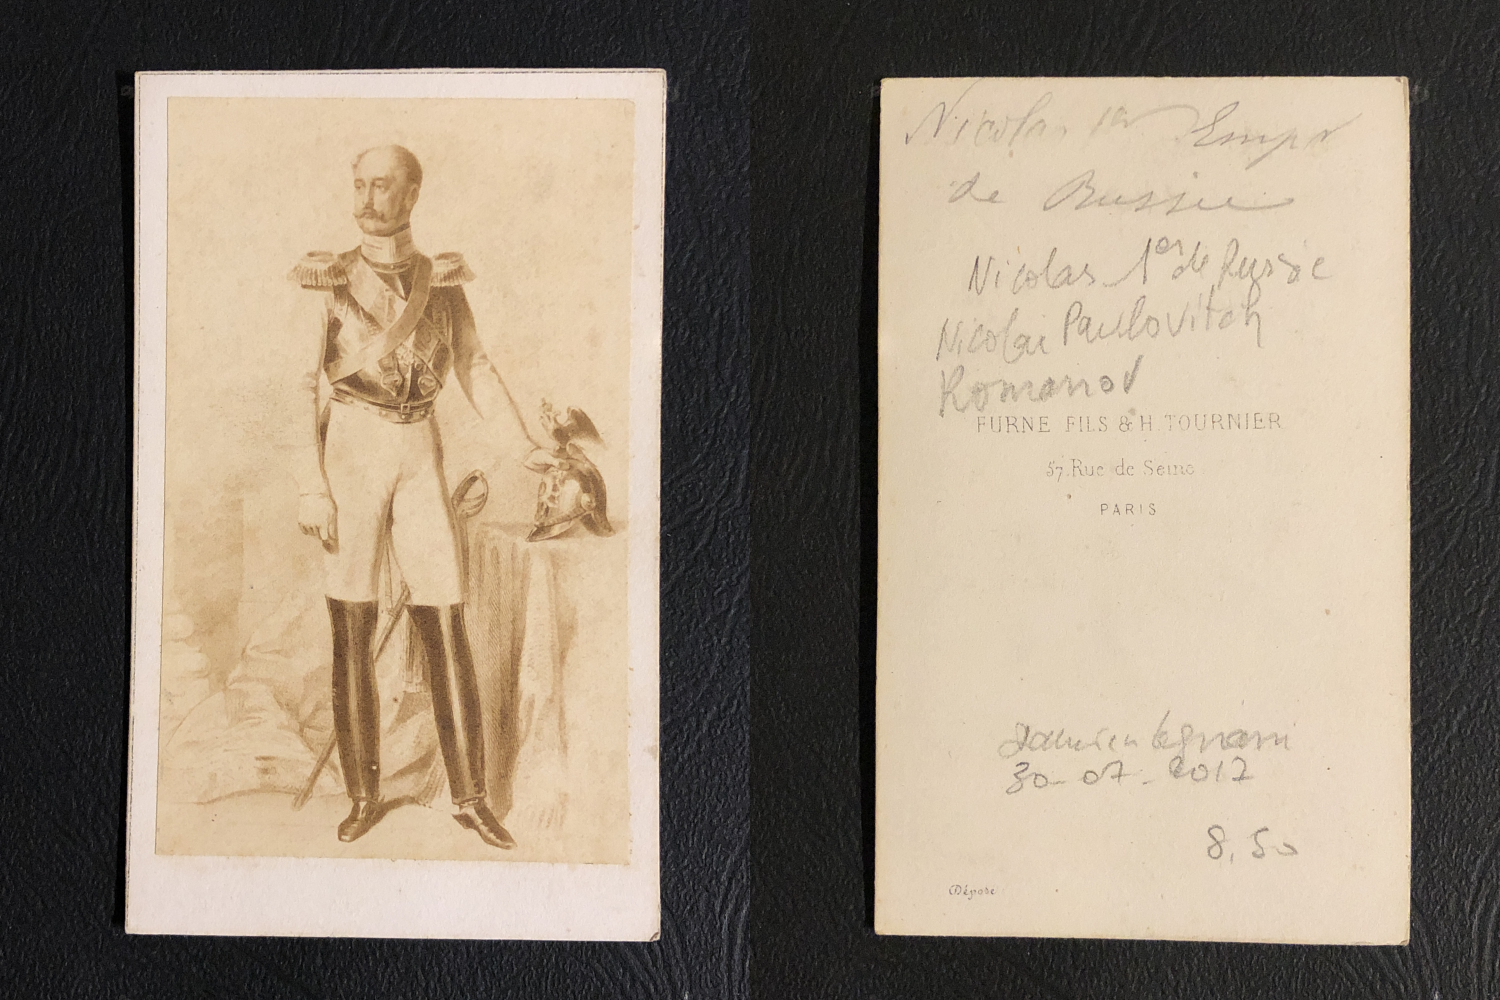 Nicolas 1er Empr
de Russie
Nicolas 1er de Russie
Nicolai Paulovitch
Romanov
FURNE FILS & H. TOURNIER
57, Rue de Seine
PARIS
30-07-2017
8,50
Déposé